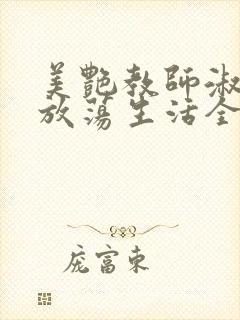 美艷教師淑
放蕩生活全
庞富東